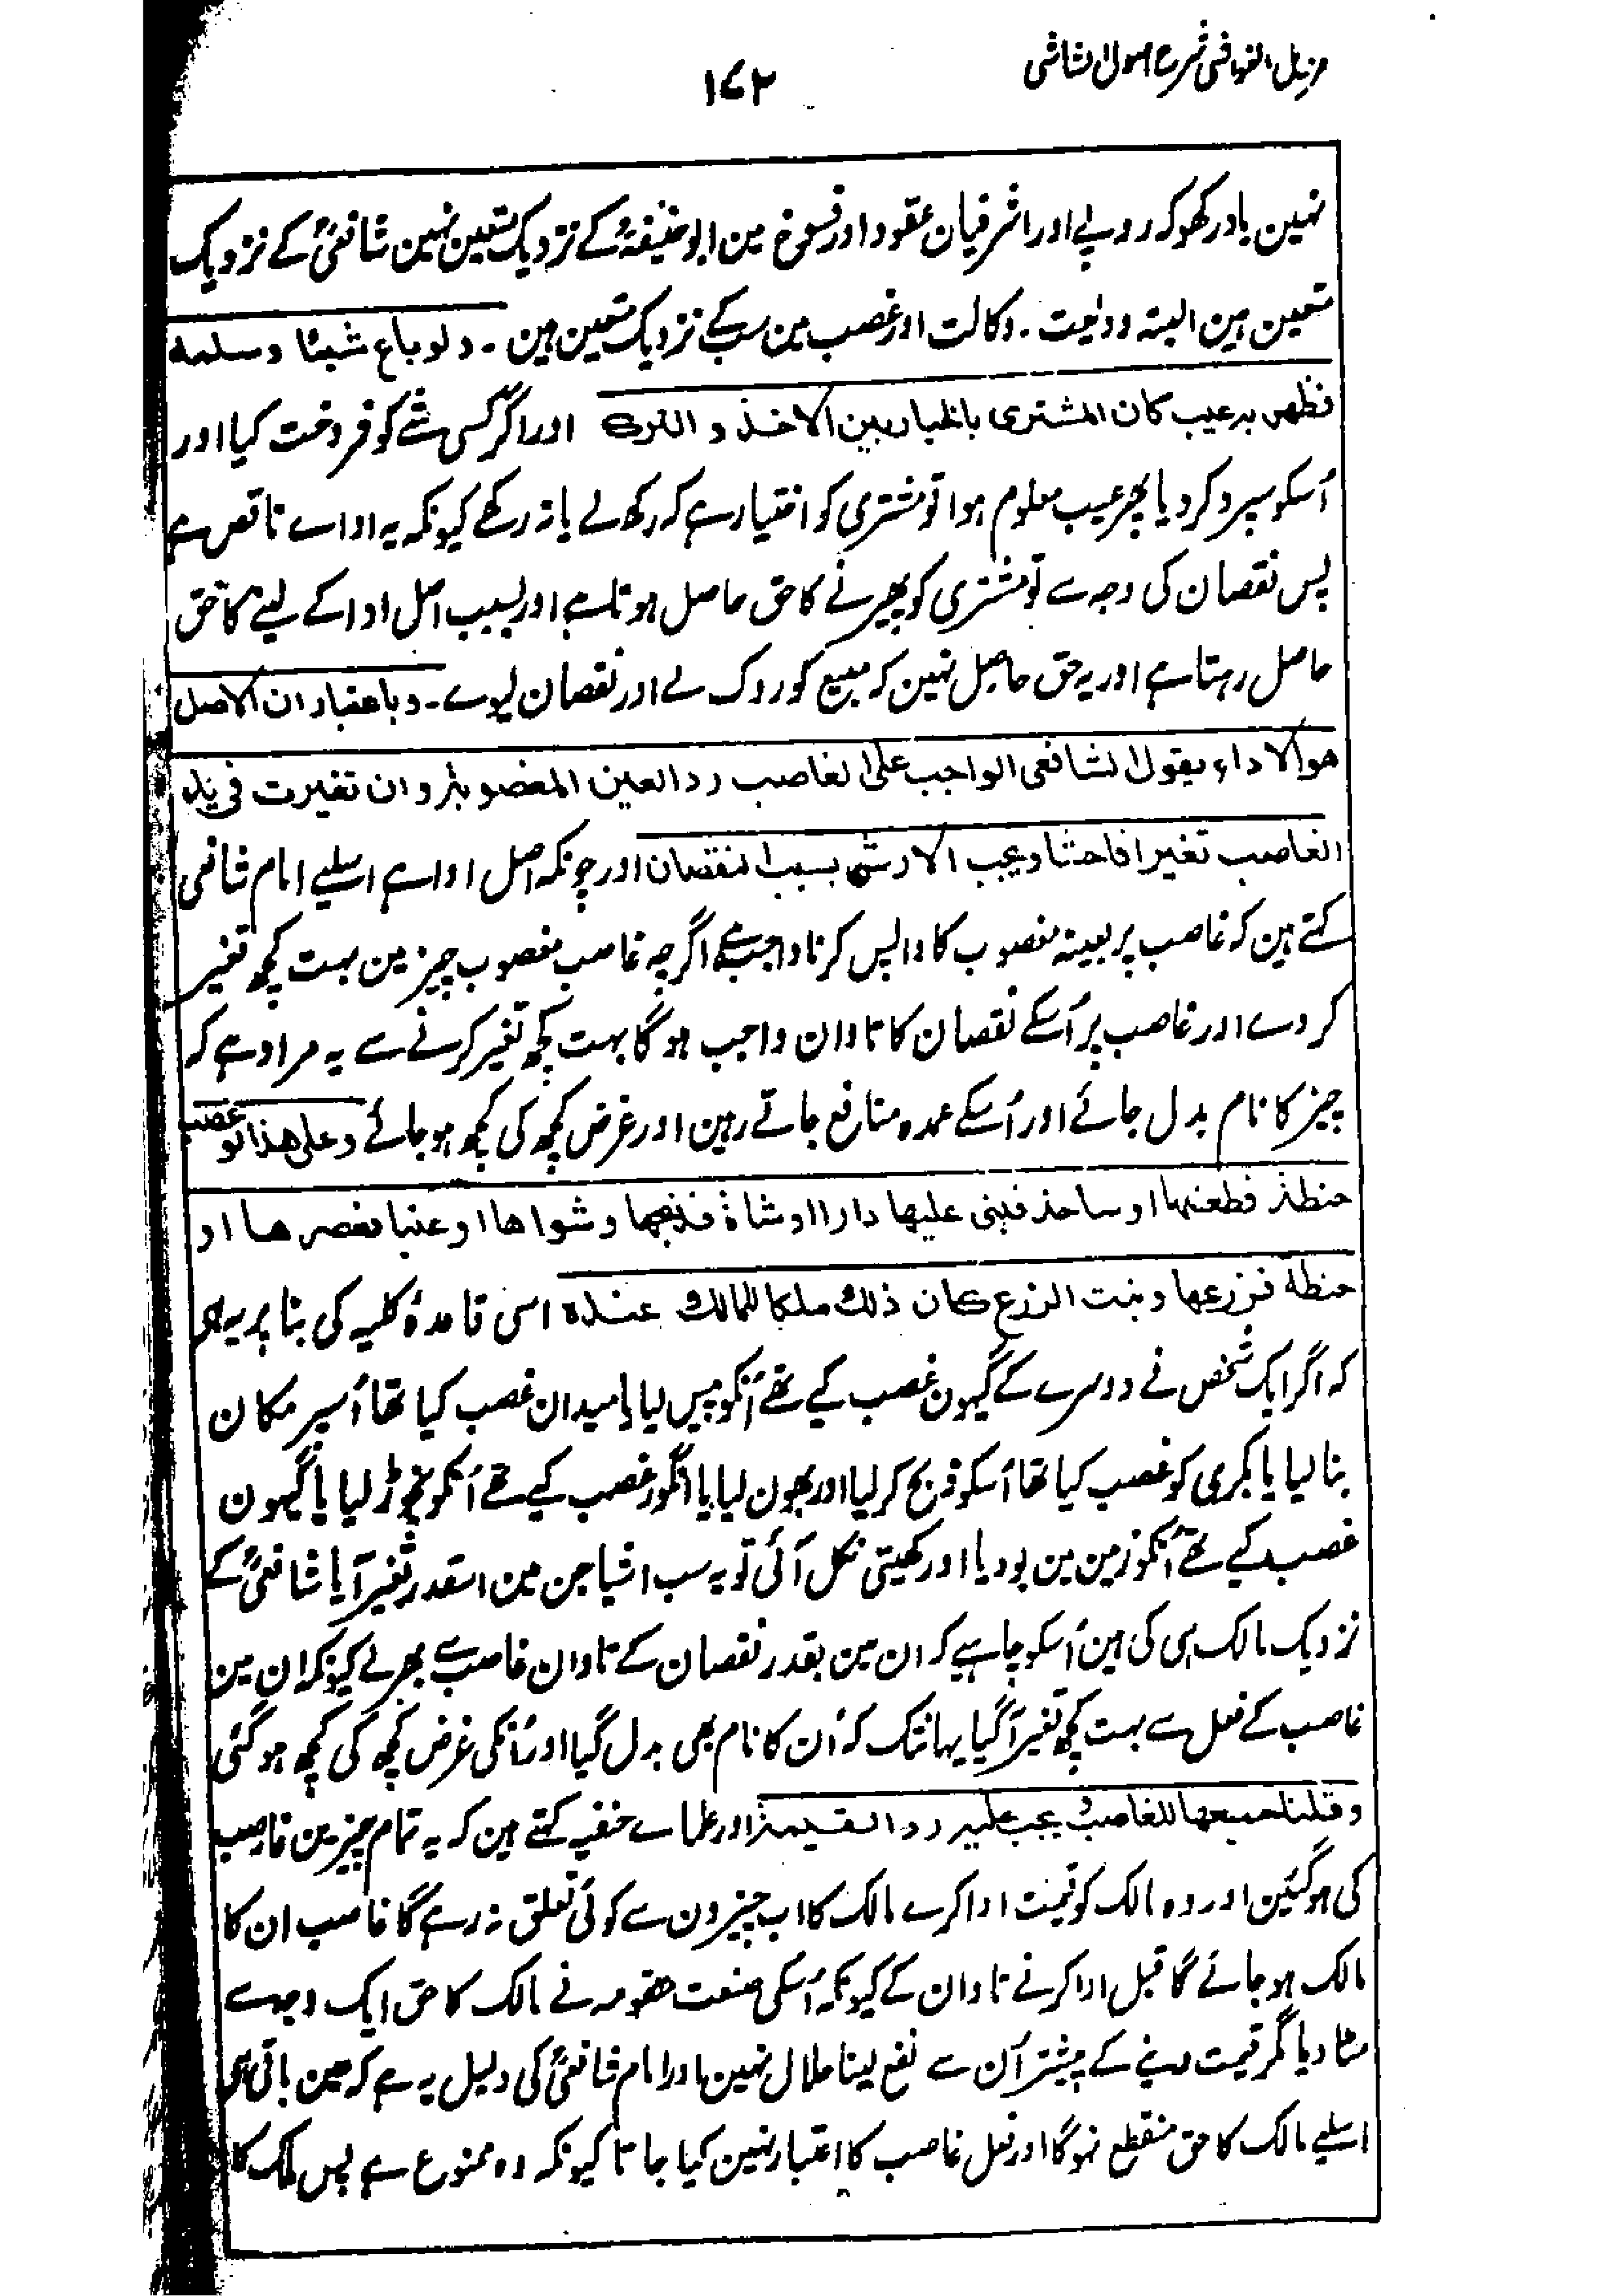 مزیل الغواشی شرح اصول الشاشی
۱۷۲
نہین یاد رکھو کہ روپے اور اشرفیان عقود اور فسوخ مین ابو حنیفہؒ کے نزدیک متعین نہین شافعیؒ کے نزدیک
متعین ہین البتہ ودیعت ۔ وکالت اور غصب مین سبکے نزدیک متعین ہین ۔ ولو باع شیئا وسلمہ
فظہر بہ عیب کان المشتری بالخیار بین الاخذ و الترک اور اگر کسی شے کو فروخت کیا اور
اُسکو سپرد کر دیا پھر عیب معلوم ہوا تو مشتری کو اختیار ہے کہ رکھ لے یا نہ رکھے کیونکہ یہ اداے ناقص ہے
پس نقصان کی وجہ سے تو مشتری کو پھیرنے کا حق حاصل ہوتا ہے اور بسبب اصل ادا کے لینے کا حق
حاصل رہتا ہے اور یہ حق حاصل نہین کہ مبیع کو روک لے اور نقصان لیوے ۔ و باعتبار ان الاصل
ھو الاداء یقول الشافعی الواجب علی الغاصب رد العین المغصوبۃ وان تغیرت فی ید
الغاصب تغیرا فاحشا ویجب الارش بسبب النقصان اور چونکہ اصل ادا ہے اسلیے امام شافعی
کہتے ہین کہ غاصب پر بعینہ مغصوب کا واپس کرنا واجب ہے اگرچہ غاصب مغصوب چیز مین بہت کچھ تغیر
کر دے اور غاصب پر اُسکے نقصان کا تاوان واجب ہو گا بہت کچھ تغیر کرنے سے یہ مراد ہے کہ
چیز کا نام بدل جائے اور اُسکے عمدہ منافع جاتے رہین اور غرض کچھ کی کچھ ہو جائے وعلی ھذا لو غصب
حنطۃ فطحنہا او ساحۃ فبنی علیھا دارا او شاۃ فذبحھا وشواھا او عنبا فعصرھا او
حنطۃ فزرعھا ونبت الزرع کان ذلک ملکا للمالک عندہ اسی قاعدۂ کلیہ کی بنا پر یہ ہے
کہ اگر ایک شخص نے دوسرے کے گیہون غصب کیے تھے اُنکو پیس لیا یا میدان غصب کیا تھا اُسپر مکان
بنا لیا یا بکری کو غصب کیا تھا اُسکو ذبح کر لیا اور بھون لیا یا انگور غصب کیے تھے اُنکو نچوڑ لیا یا گیہون
غصب کیے تھے اُنکو زمین مین بو دیا اور کھیتی نکل آئی تو یہ سب اشیا جن مین اسقدر تغیر آیا شافعیؒ کے
نزدیک مالک ہی کی ہین اُسکو چاہیے کہ ان مین بقدر نقصان کے تاوان غاصب سے بھر لے کیونکہ ان مین
غاصب کے فعل سے بہت کچھ تغیر آ گیا یہانتک کہ اُن کا نام بھی بدل گیا اور اُنکی غرض کچھ کی کچھ ہو گئی
وقلنا جمیعھا للغاصب ویجب علیہ رد القیمۃ اور علماے حنفیہ کہتے ہین کہ یہ تمام چیزین غاصب
کی ہو گئین اور وہ مالک کو قیمت ادا کرے مالک کا اب چیزون سے کوئی تعلق نہ رہے گا غاصب ان کا
مالک ہو جائے گا قبل ادا کرنے تاوان کے کیونکہ اُسکی صنعت متقومہ نے مالک کا حق ایک وجہ سے
مٹا دیا مگر قیمت دینے کے پیشتر اُن سے نفع لینا حلال نہین اور امام شافعیؒ کی دلیل یہ ہے کہ عین باقی ہے
اسلیے مالک کا حق منقطع نہوگا اور فعل غاصب کا اعتبار نہین کیا جاتا کیونکہ وہ ممنوع ہے پس ملک کا